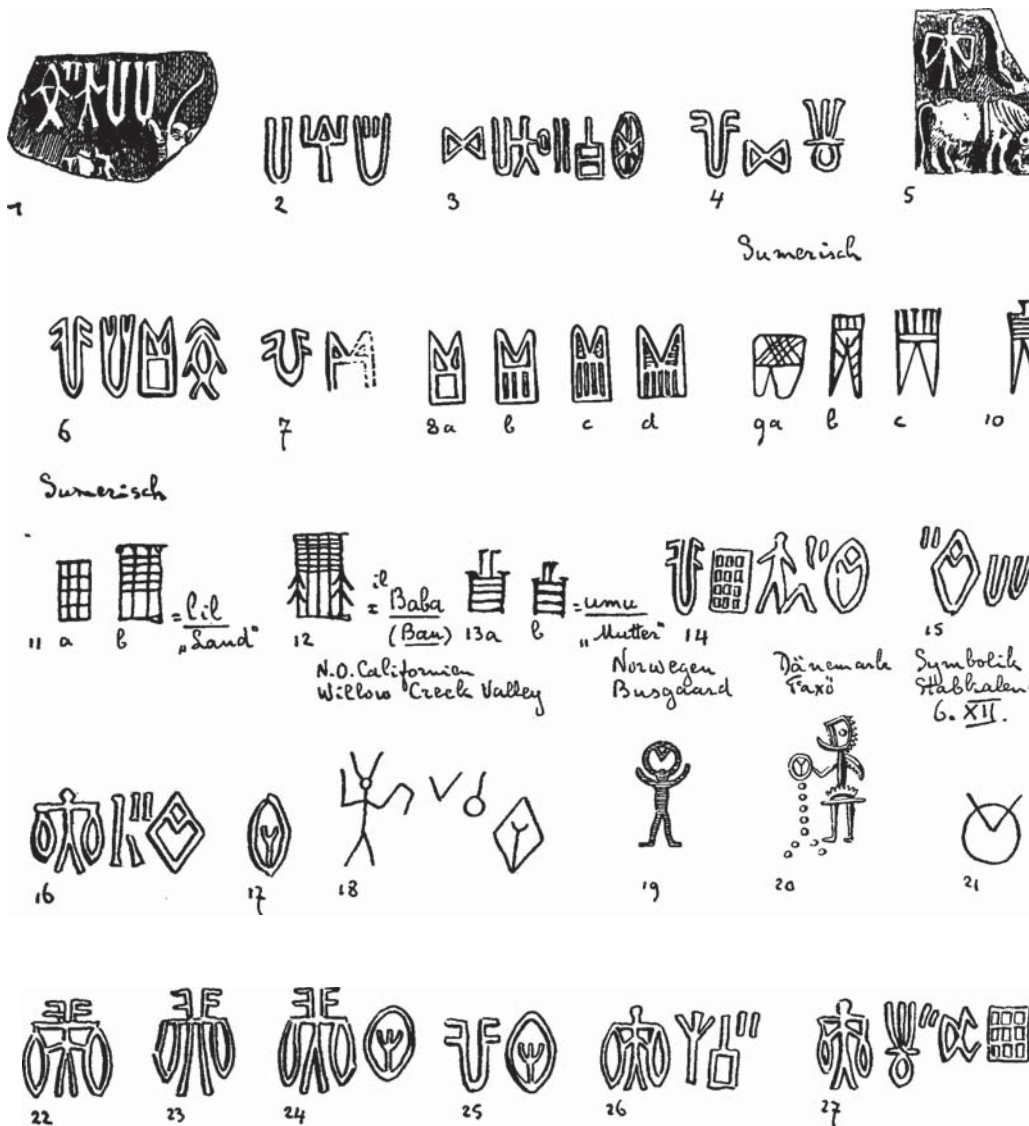 1
2
3
4
5
Sumerisch
6
7
8a
b
c
d
9a
b
c
10
Sumerisch
11 a
b
= Lil
„Land"
12
= il Baba
(Bau)
13a
b
= umu
„Mutter"
14
15
N.O. Californien
Willow Creek Valley
Norwegen
Busgaard
Dänemark
Faxö
Symbolik
6. XII.
16
17
18
19
20
21
22
23
24
25
26
27